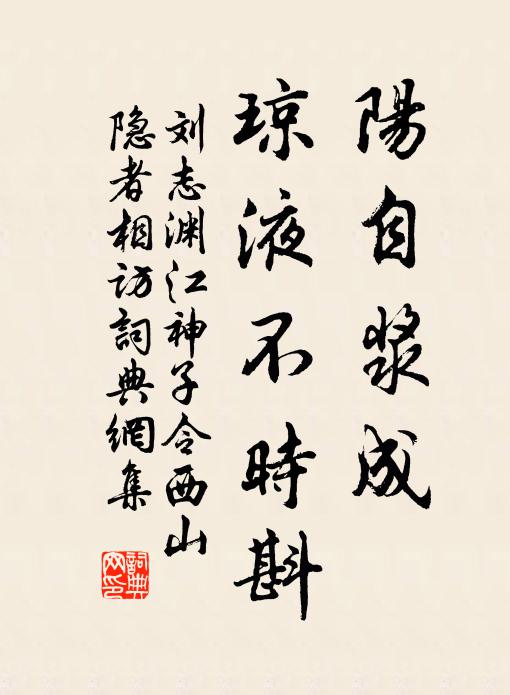 陽自漿成
琼液不時斟
刘志渊江神子令西山
隐者相访詞典網集
詞典
网印